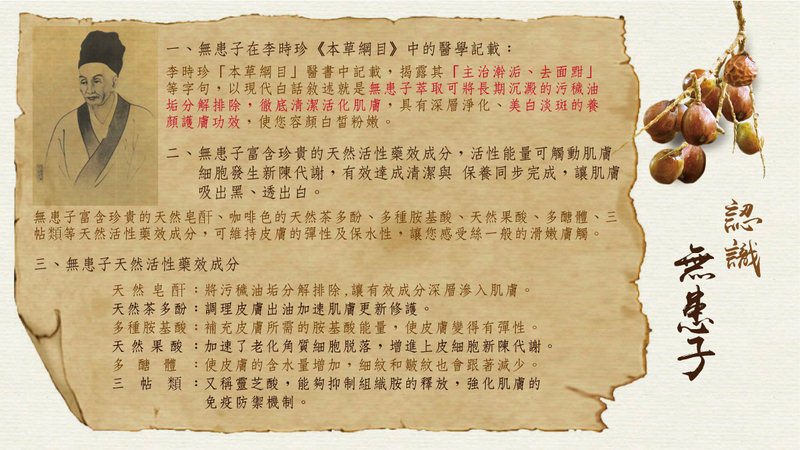 一、無患子在李時珍《本草綱目》中的醫學記載：
李時珍「本草綱目」醫書中記載，揭露其「主治澣垢、去面䵟」
等字句，以現代白話敘述就是無患子萃取可將長期沉澱的污穢油
垢分解排除，徹底清潔活化肌膚，具有深層淨化、美白淡斑的養
顏護膚功效，使您容顏白皙粉嫩。
二、無患子富含珍貴的天然活性藥效成分，活性能量可觸動肌膚
細胞發生新陳代謝，有效達成清潔與 保養同步完成，讓肌膚
吸出黑、透出白。
無患子富含珍貴的天然皂酐、咖啡色的天然茶多酚、多種胺基酸、天然果酸、多醣體、三
帖類等天然活性藥效成分，可維持皮膚的彈性及保水性，讓您感受絲一般的滑嫩膚觸。
三、無患子天然活性藥效成分
天然皂酐：將污穢油垢分解排除,讓有效成分深層滲入肌膚。
天然茶多酚：調理皮膚出油加速肌膚更新修護。
多種胺基酸：補充皮膚所需的胺基酸能量，使皮膚變得有彈性。
天然果酸：加速了老化角質細胞脫落，增進上皮細胞新陳代謝。
多醣體：使皮膚的含水量增加，細紋和皺紋也會跟著減少。
三帖類：又稱靈芝酸，能夠抑制組織胺的釋放，強化肌膚的
免疫防禦機制。
認識
無患子